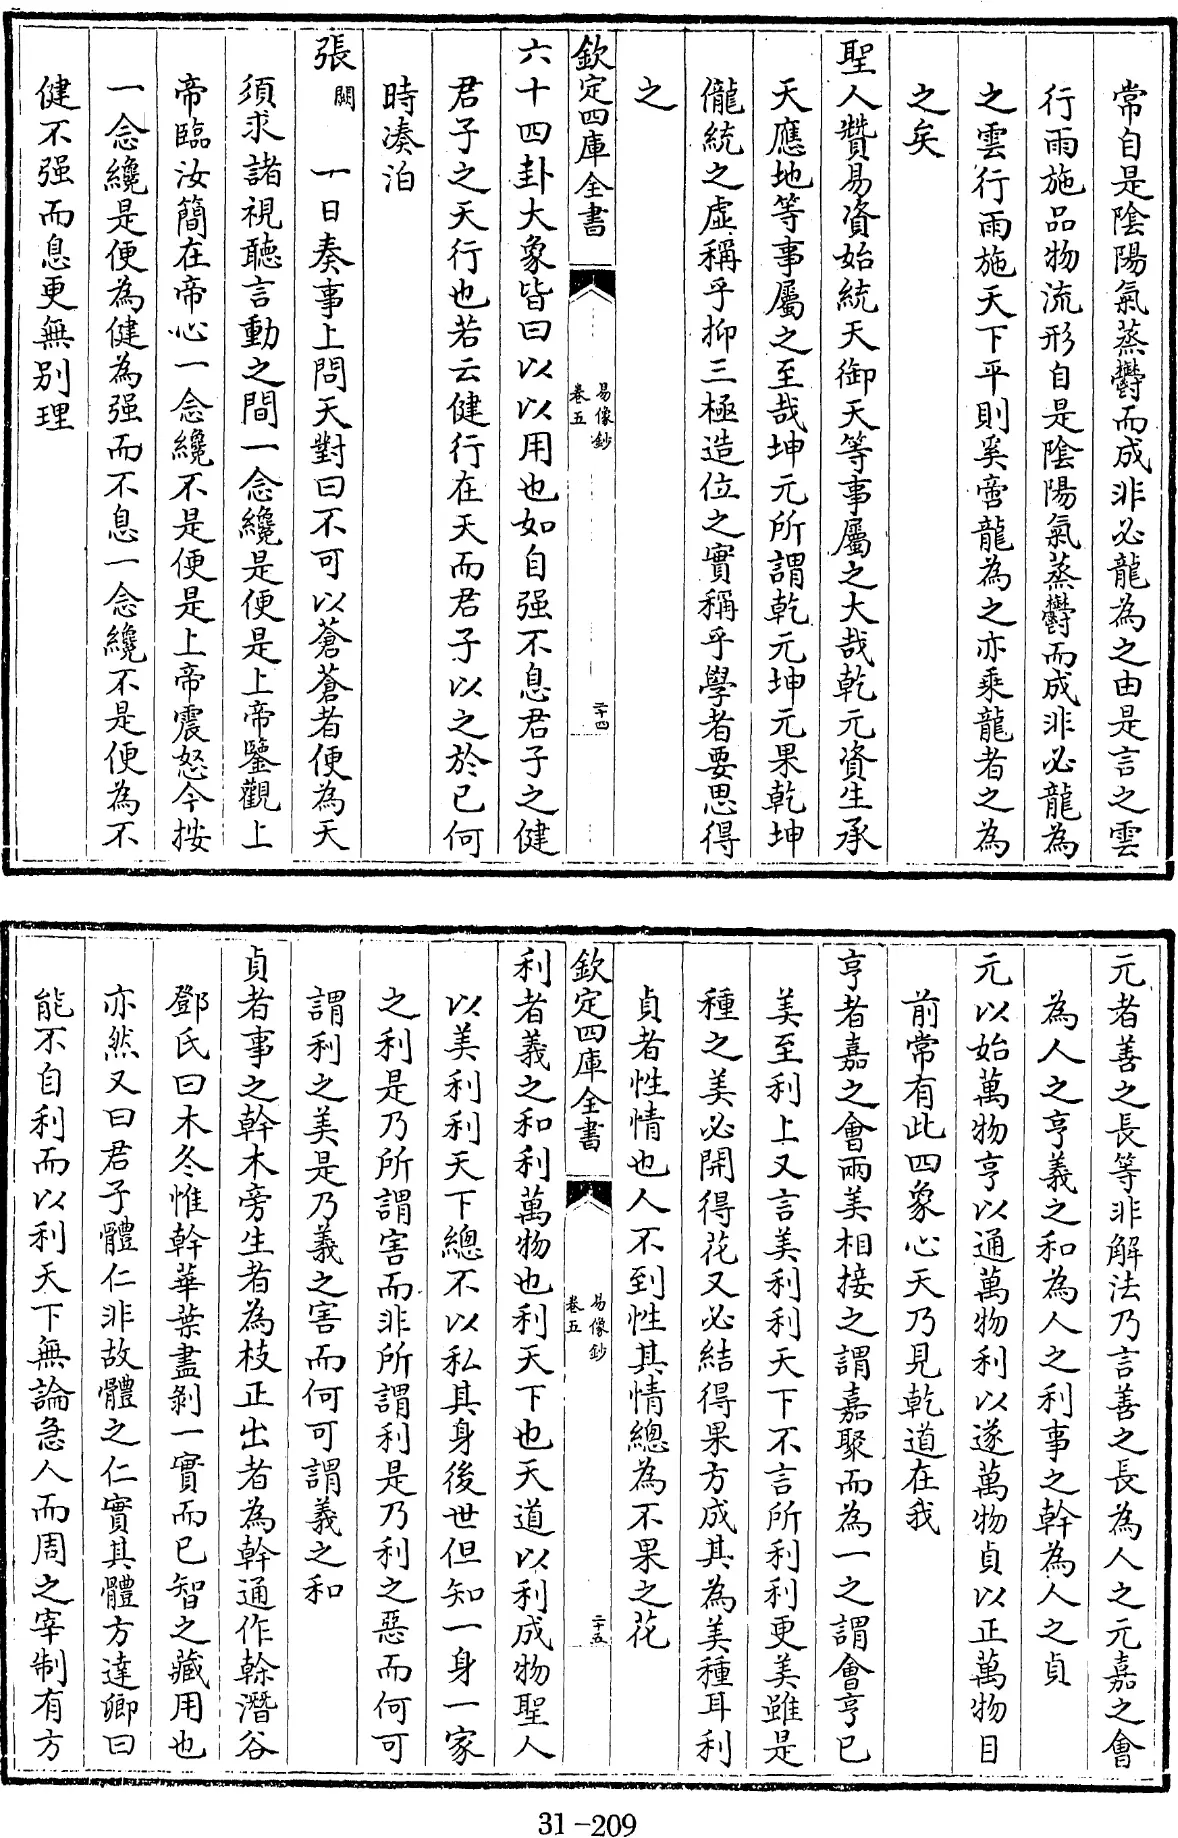 常自是陰陽氣蒸鬱而成非必龍為之由是言之雲
行雨施品物流形自是陰陽氣蒸鬱而成非必龍為
之雲行雨施天下平則奚啻龍為之亦乘龍者之為
之矣
聖人贊易資始統天御天等事屬之大哉乾元資生承
天應地等事屬之至哉坤元所謂乾元坤元果乾坤
儱統之虛稱乎抑三極造位之實稱乎學者要思得
之
欽定四庫全書
易像鈔
卷五
二十四
六十四卦大象皆曰以以用也如自强不息君子之健
君子之天行也若云健行在天而君子以之於己何
時凑泊
張闕 一日奏事上問天對曰不可以蒼蒼者便為天
須求諸視聽言動之間一念纔是便是上帝鑒觀上
帝臨汝簡在帝心一念纔不是便是上帝震怒今按
一念纔是便為健為强而不息一念纔不是便為不
健不强而息更無別理
元者善之長等非解法乃言善之長為人之元嘉之會
為人之亨義之和為人之利事之幹為人之貞
元以始萬物亨以通萬物利以遂萬物貞以正萬物目
前常有此四象心天乃見乾道在我
亨者嘉之會兩美相接之謂嘉聚而為一之謂會亨已
美至利上又言美利利天下不言所利利更美雖是
種之美必開得花又必結得果方成其為美種耳利
貞者性情也人不到性其情總為不果之花
欽定四庫全書
易像鈔
卷五
二十五
利者義之和利萬物也利天下也天道以利成物聖人
以美利利天下總不以私其身後世但知一身一家
之利是乃所謂害而非所謂利是乃利之惡而何可
謂利之美是乃義之害而何可謂義之和
貞者事之幹木旁生者為枝正出者為幹通作榦潛谷
鄧氏曰木冬惟幹華葉盡剝一實而已智之藏用也
亦然又曰君子體仁非故體之仁實其體方達卿曰
能不自利而以利天下無論急人而周之宰制有方
31-209